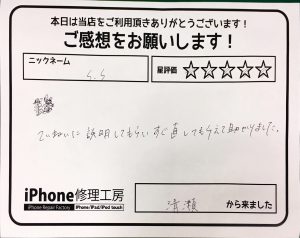 本日は当店をご利用頂きありがとうございます!
ご感想をお願いします!
ニックネーム
S.S
星評価 ☆☆☆☆☆
ていねいに説明してもらいすぐ直してもらえて助かりました。
iPhone修理工房
iPhone Repair Factory iPhone/iPad/iPod touch
清瀬 から来ました